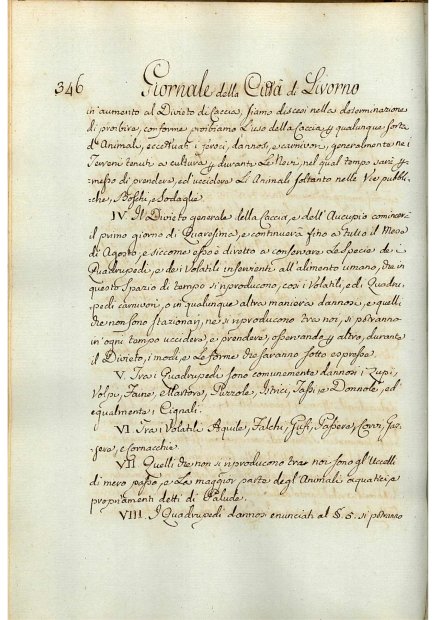 346 Giornale della Città di Livorno
in aumento al Divieto di Caccia, siamo discesi nella determinazione
di proibire, conforme proibiamo l'uso della Caccia p qualunque sorta
d'Animali, eccettuati i feroci, dannosi, e carnivori, generalmente nei
Terreni tenuti a cultura, e durante Le Nevi, nel qual tempo sarà p=
messo di prendere, ed uccidere Li Animali soltanto nelle Vie pubbli=
che, Boschi, e Sodaglie.
IV. Il Divieto generale della Caccia, e dell'Aucupio comincerà
il primo giorno di Quaresima, e continuerà fino a tutto il Mese
di Agosto, e siccome esso è diretto a conservare Le Specie dei
Quadrupedi, e dei Volatili inservienti all'alimento umano, che in
questo Spazio di tempo si riproducono, così i Volatili, ed i Quadru=
pedi carnivori, o in qualunque altra maniera dannosi, e quelli
che non sono stazionari, ne si riproducono tra noi, si potranno
in ogni tempo uccidere, e prendere, osservando p altro, durante
il Divieto, i modi, e Le forme che saranno sotto espresse.
V. Tra i Quadrupedi sono comunemente dannosi i Lupi,
Volpi, Faine, e Martore, Puzzole, Istrici, Tassi, e Donnole, ed
egualmente i Cignali.
VI Tra i Volatili Aquile, Falchi, Gufi, Passere, Corvi, Gaz=
zere, e Cornacchie
VII Quelli che non si riproducono tra noi sono gl'Uccelli
di mero passo, e La maggior parte degl'Animali aquatici, e
propriamenti detti di Palude.
VIII. I Quadrupedi dannosi enunciati al §. 5. si potranno